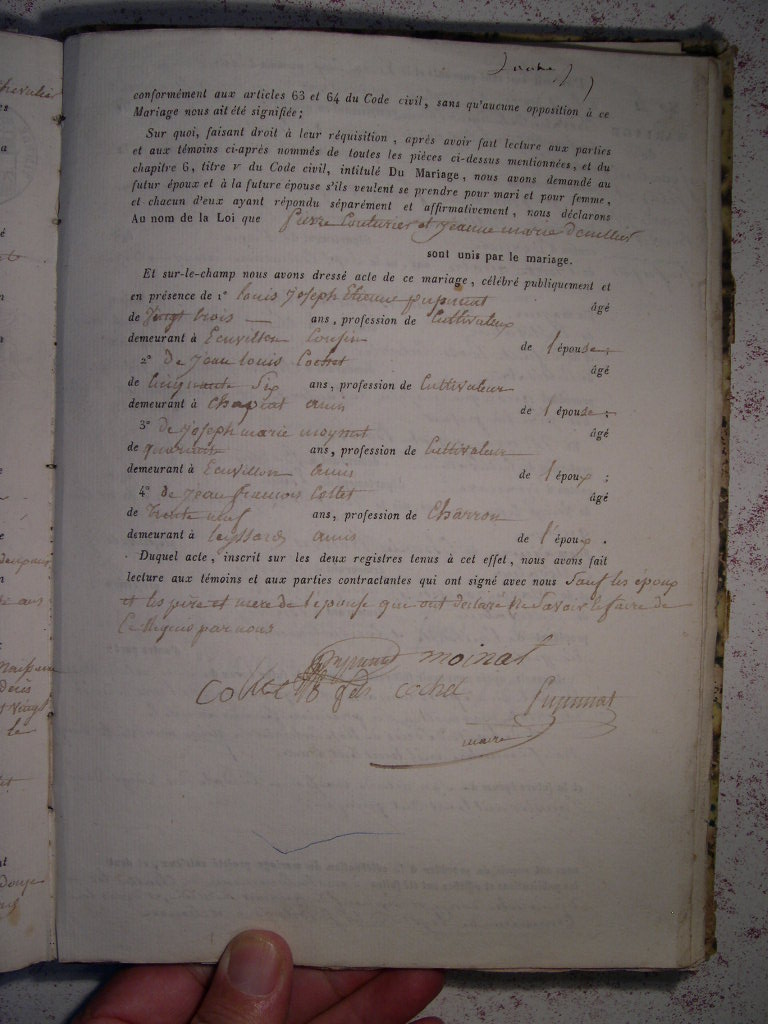 conformément aux articles 63 et 64 du Code civil, sans qu'aucune opposition à ce
Mariage nous ait été signifiée;
Sur quoi, faisant droit à leur réquisition, après avoir fait lecture aux parties
et aux témoins ci-après nommés de toutes les pièces ci-dessus mentionnées, et du
chapitre 6, titre v du Code civil, intitulé Du Mariage, nous avons demandé au
futur époux et à la future épouse s'ils veulent se prendre pour mari et pour femme,
et chacun d'eux ayant répondu séparément et affirmativement, nous déclarons
Au nom de la Loi que pierre Couturier et jeanne marie
sont unis par le mariage.
Et sur-le-champ nous avons dressé acte de ce mariage, célébré publiquement et
en présence de 1° louis joseph Etienne pupunat âgé
de vingt trois ans, profession de Cultivateur
demeurant à Ecuvillon Cousin de l'épouse;
2° de jean louis Cochet âgé
de Cinquante Six ans, profession de Cultivateur
demeurant à amis de l'épouse;
3° de joseph marie moynat âgé
de quarante ans, profession de Cultivateur
demeurant à Ecuvillon amis de l'époux;
4° de jean francois Collet âgé
de trente neuf ans, profession de Charron
demeurant à leyssard amis de l'époux.
Duquel acte, inscrit sur les deux registres tenus à cet effet, nous avons fait
lecture aux témoins et aux parties contractantes qui ont signé avec nous Sauf les époux
et les père et mere de l'epouse que ont declaré ne Savoir le faire de
Ce Requis par nous
pupunat moinat
Collet cochet pupunat
maire